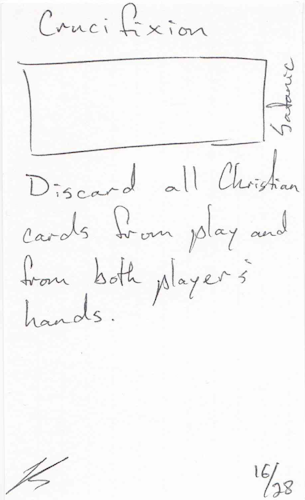 Crucifixion
Satanic
Discard all Christian
cards from play and
from both player's
hands.
16/28